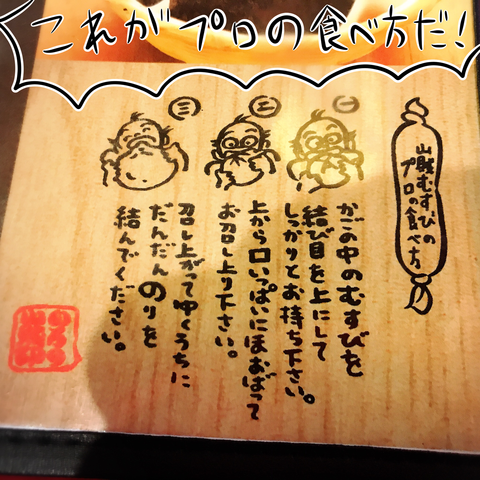 これがプロの食べ方だ!
山賊むすびの
プロの食べ方
一
かごの中のむすびを
結び目を上にして
しっかりとお持ち下さい。
二
上から口いっぱいにほおばって
お召し上り下さい。
三
召し上がってゆくうちに
だんだんのりを
結んでください。